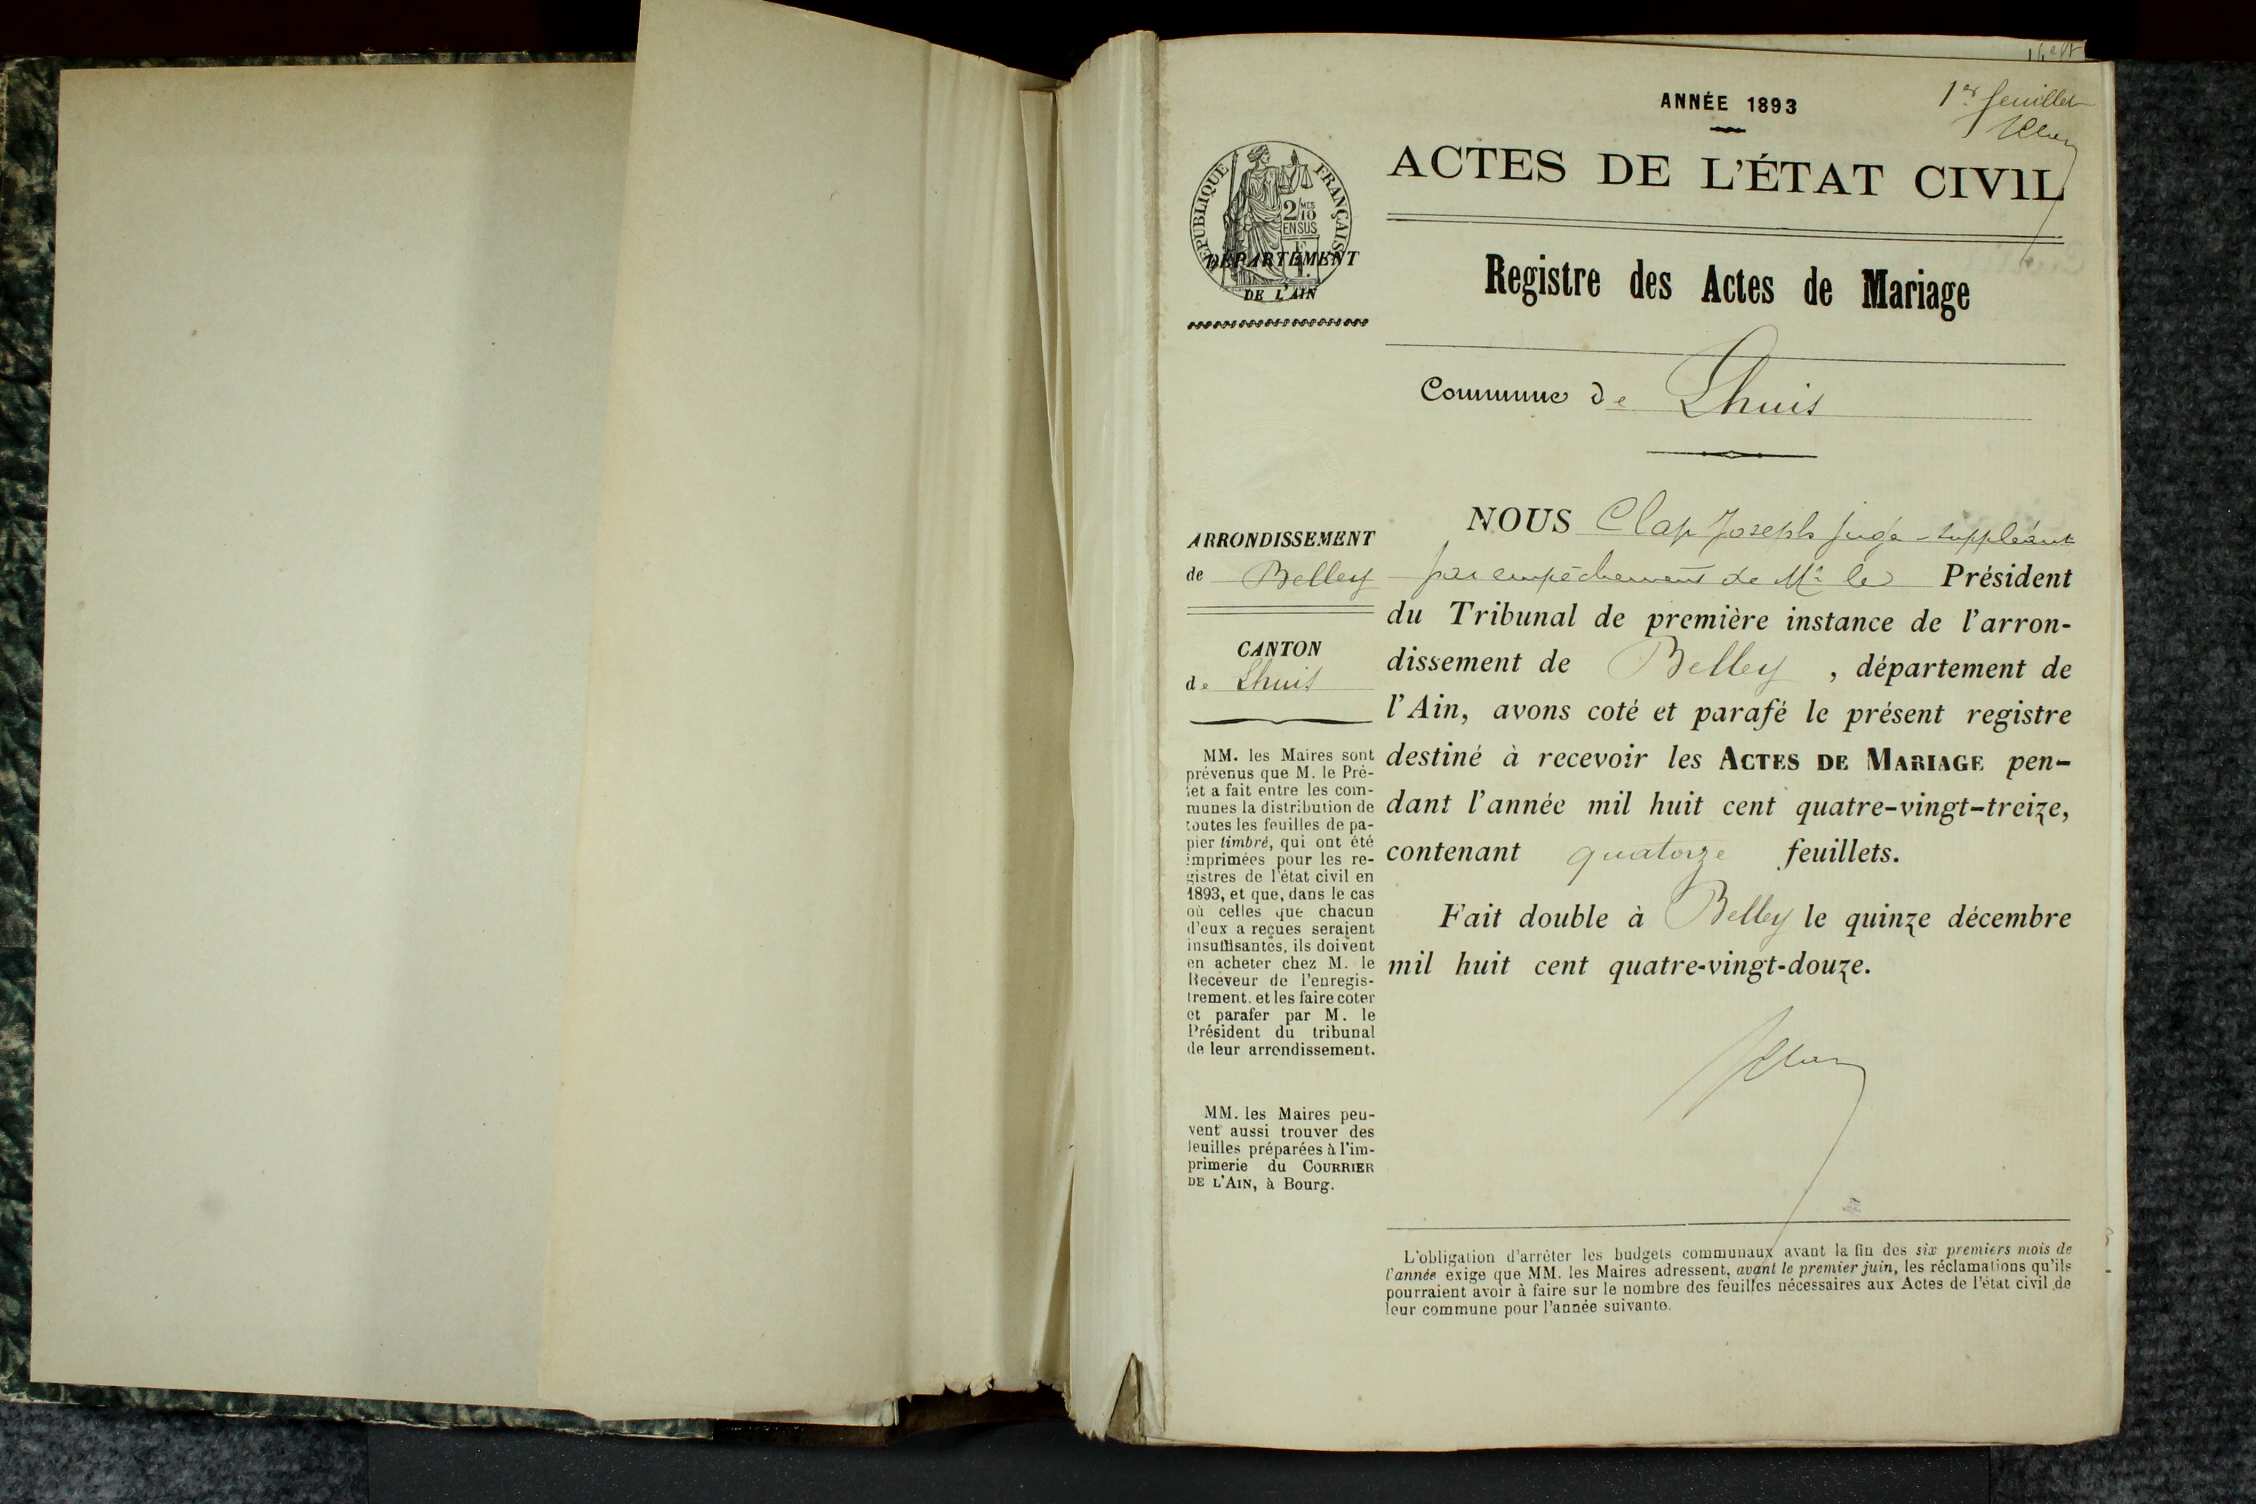 ANNÉE 1893
1er feuillet
ACTES DE L'ÉTAT CIVIL
RÉPUBLIQUE FRANÇAISE
2/10 MES
EN SUS
DÉPARTEMENT
DE L'AIN
Registre des Actes de Mariage
Commune de Lhuis
ARRONDISSEMENT
de Belley
CANTON
de Lhuis
MM. les Maires sont
prévenus que M. le Pré-
fet a fait entre les com-
munes la distribution de
toutes les feuilles de pa-
pier timbré, qui ont été
imprimées pour les re-
gistres de l'état civil en
1893, et que, dans le cas
où celles que chacun
d'eux a reçues seraient
insuffisantes, ils doivent
en acheter chez M. le
Receveur de l'enregis-
trement. et les faire coter
et parafer par M. le
Président du tribunal
de leur arrondissement.
MM. les Maires peu-
vent aussi trouver des
feuilles préparées à l'im-
primerie du COURRIER
DE L'AIN, à Bourg.
NOUS Clap Joseph juge-suppléant
par empêchement de Mr le Président
du Tribunal de première instance de l'arron-
dissement de Belley, département de
l'Ain, avons coté et parafé le présent registre
destiné à recevoir les ACTES DE MARIAGE pen-
dant l'année mil huit cent quatre-vingt-treize,
contenant quatorze feuillets.
Fait double à Belley le quinze décembre
mil huit cent quatre-vingt-douze.
L'obligation d'arrêter les budgets communaux avant la fin des six premiers mois de
l'année exige que MM. les Maires adressent, avant le premier juin, les réclamations qu'ils
pourraient avoir à faire sur le nombre des feuilles nécessaires aux Actes de l'état civil de
leur commune pour l'année suivante.